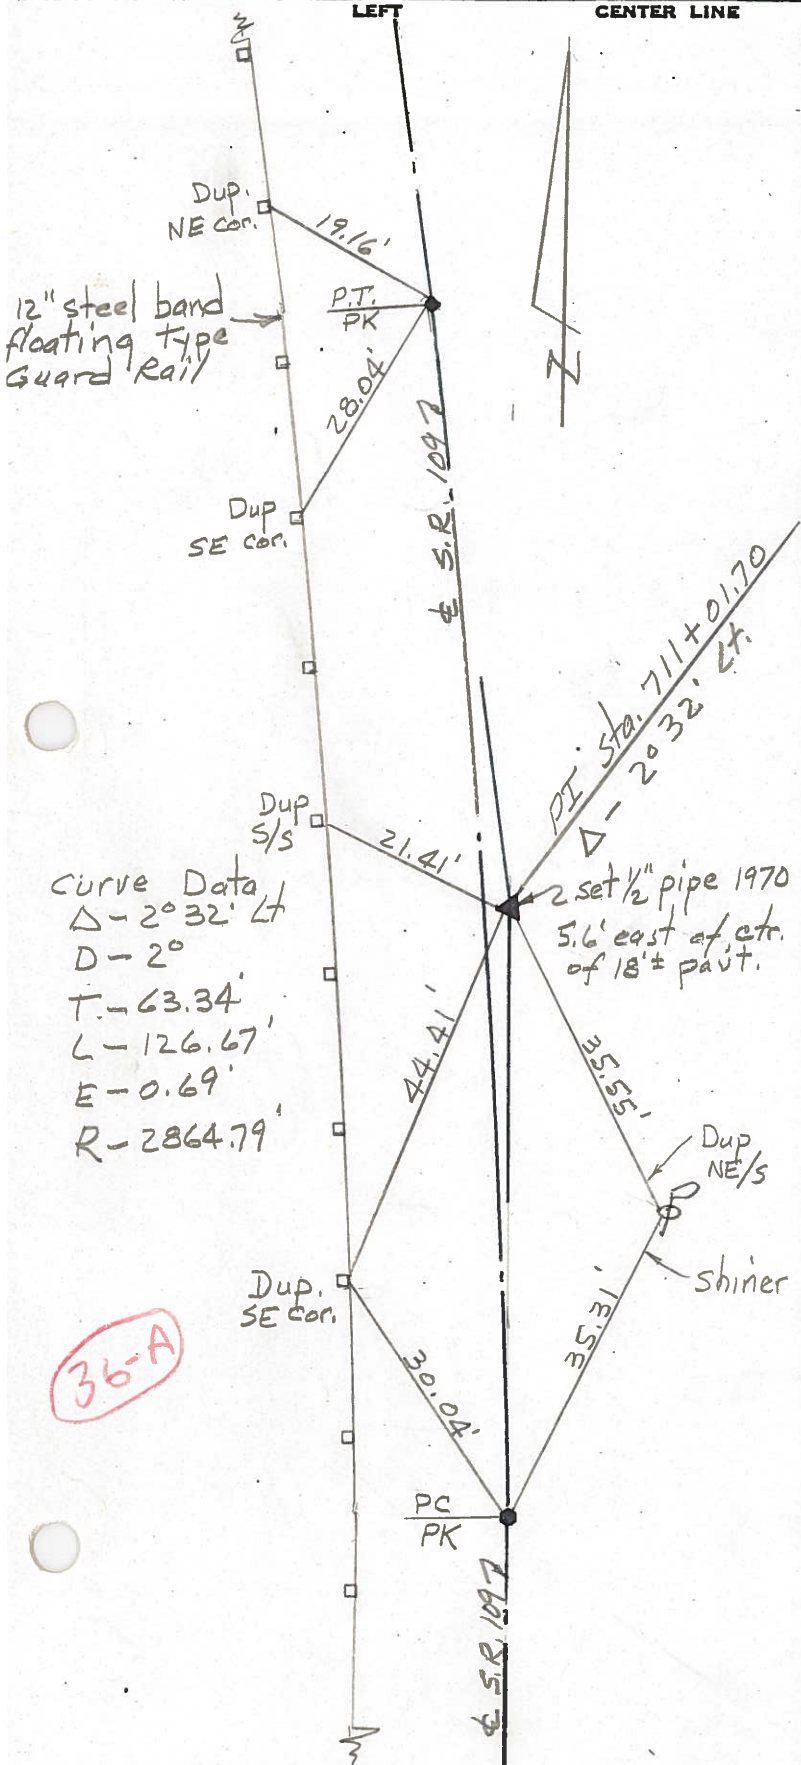 LEFT
CENTER LINE
Dup.
NE cor.
19.16'
12" steel band
floating type
Guard Rail
P.T.
PK
28.04'
Z
Dup
SE cor.
℄ S.R. 1097
PI Sta. 711+01.70
Δ - 2° 32' Lt.
Dup
S/S
21.41'
set 1/2" pipe 1970
5.6' east of ctr.
of 18'± pav't.
Curve Data
Δ - 2° 32' Lt
D - 2°
T. - 63.34'
L - 126.67'
E - 0.69'
R - 2864.79'
44.41'
35.55'
Dup
NE/S
Shiner
Dup.
SE cor.
35.31'
30.04'
36-A
PC
PK
℄ S.R. 1097